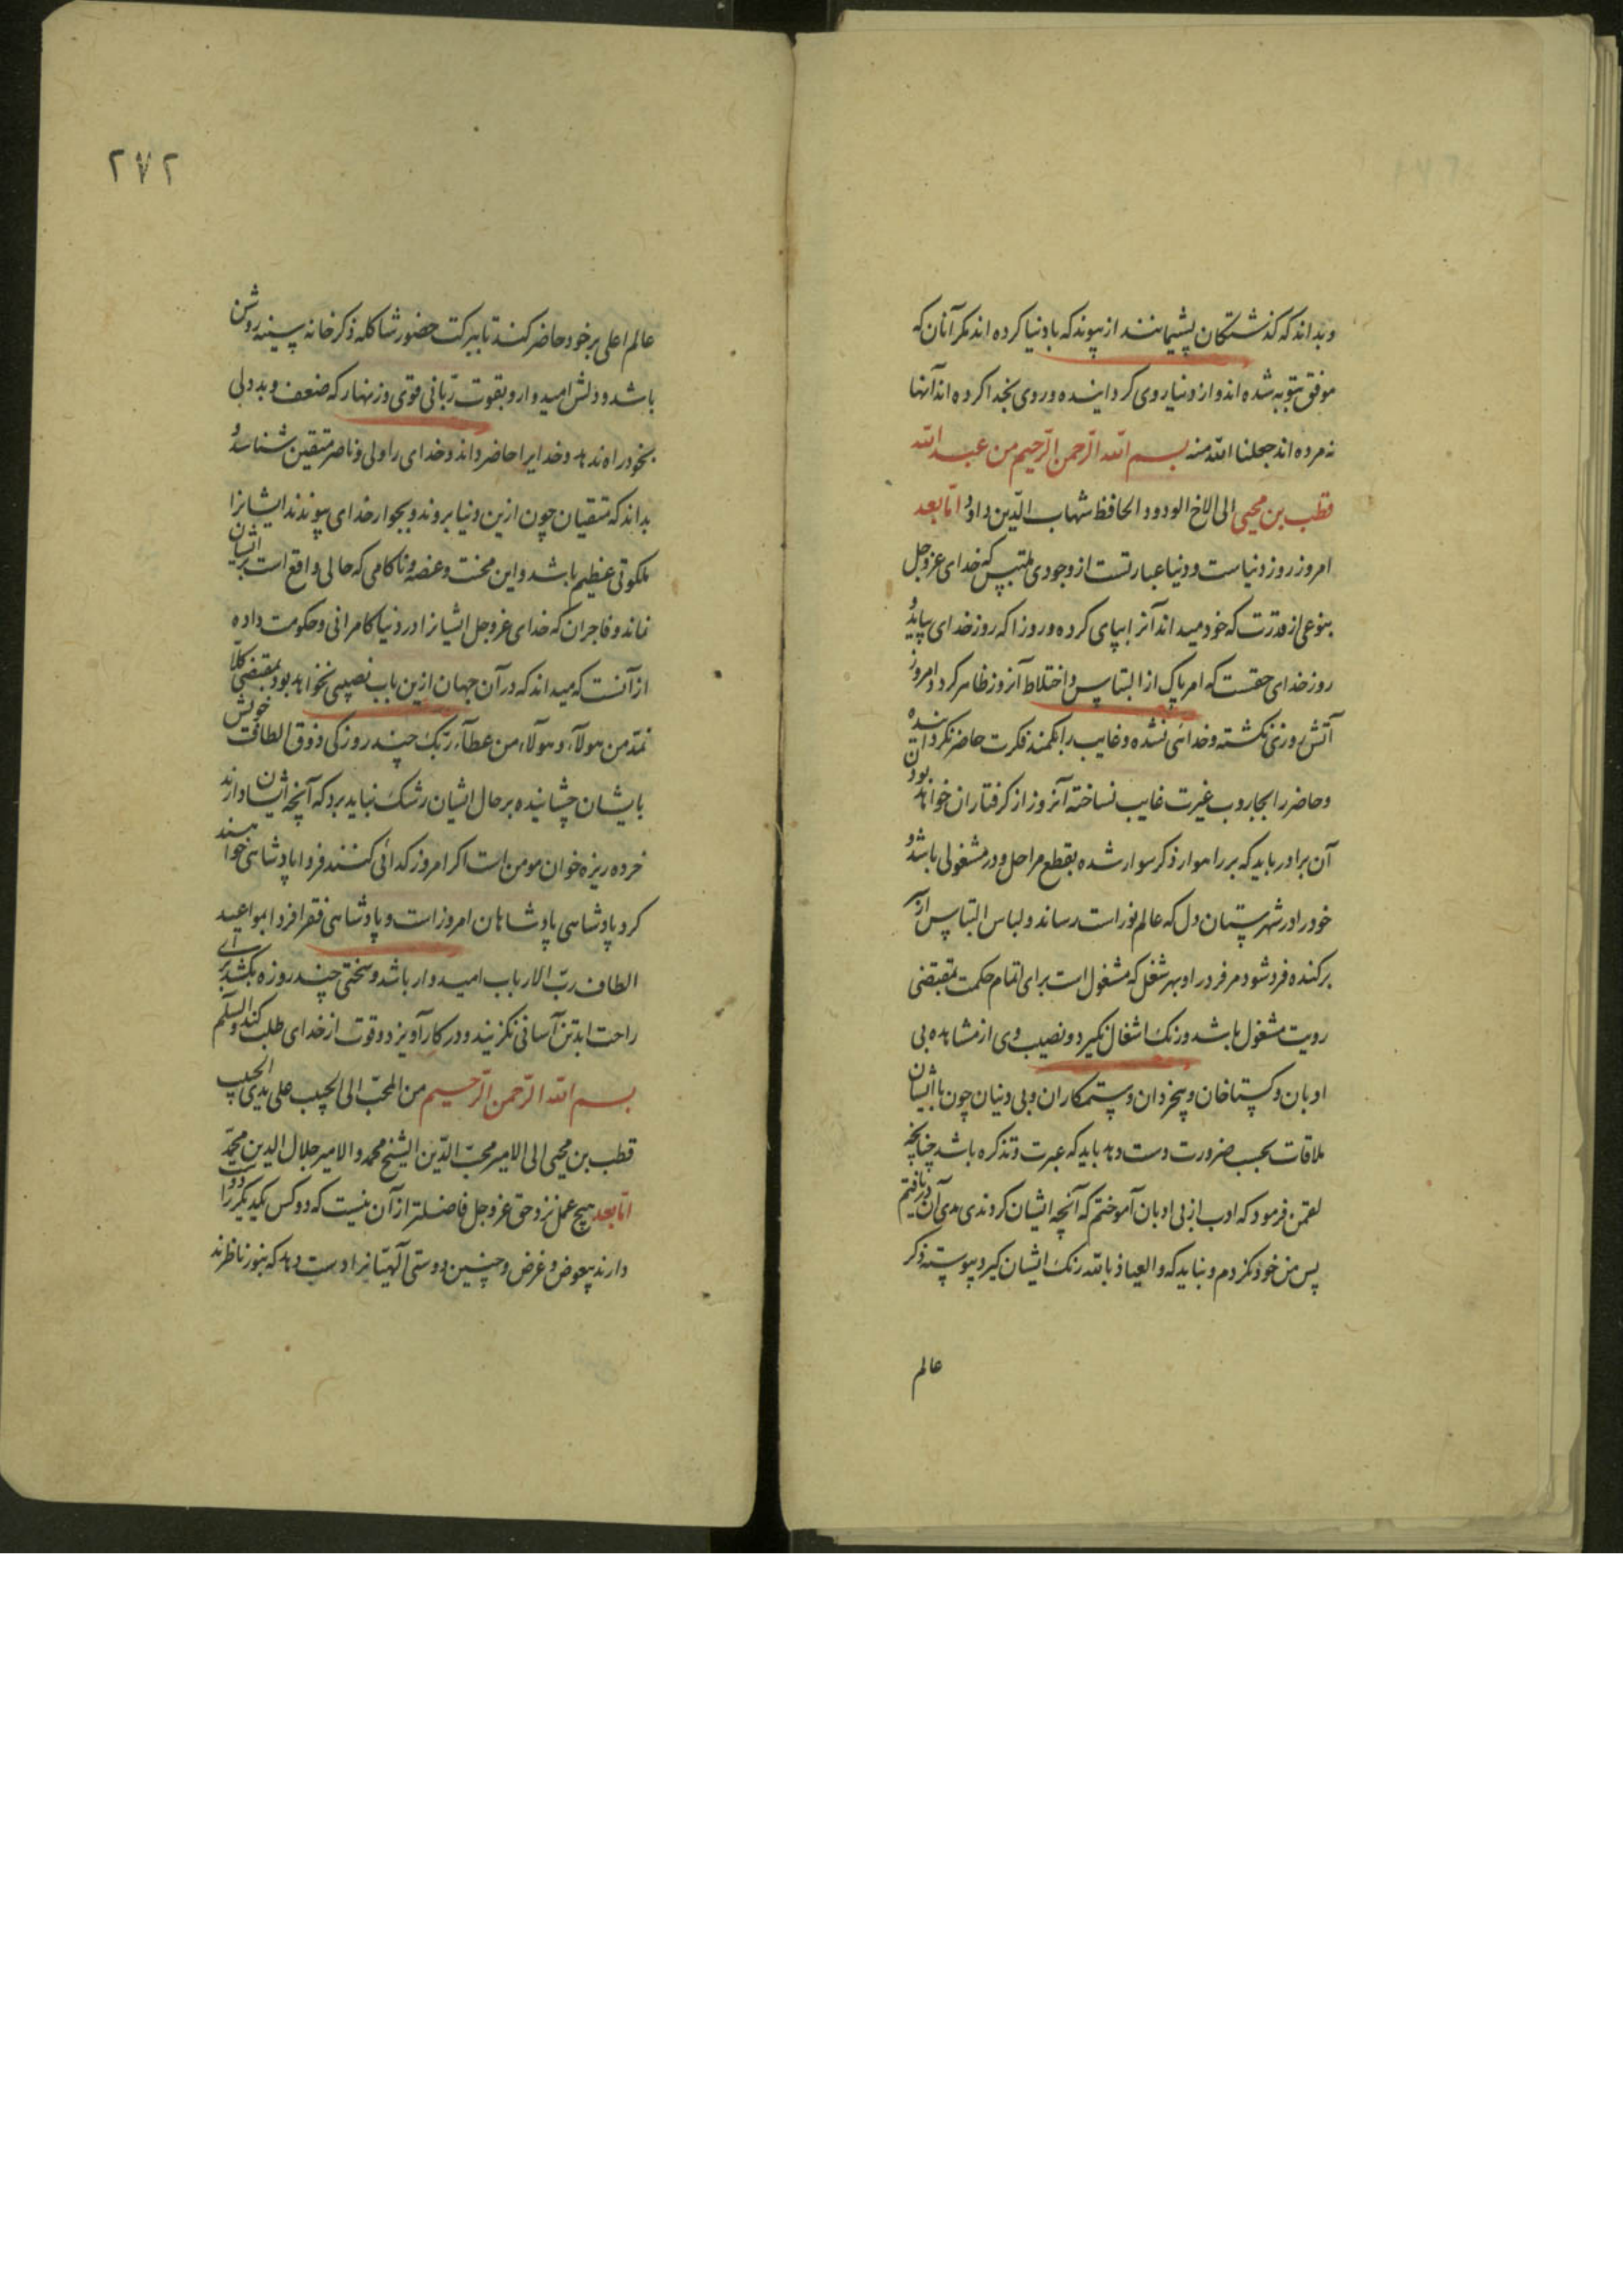 وبداند که کذشتکان پشیمانند از پیوند که با دنیا کرده اند مکر آنان که
موفق بتوبه شده اند و از دنیا روی کردانیده و روی بخدا کرده اند آنها
نه مرده اند جعلنا الله منه بسم الله الرحمن الرحیم من عبد الله
قطب بن محیی الی الاخ الودود الحافظ شهاب الدین داود اما بعد
امروز روز دنیاست و دنیا عبارتست از وجودی ملتبس که خدای عز و جل
بنوعی از قدرت که خود میداند آنرا بپای کرده و روز آ که روز خدای بپاید و
روز خدای حقست که امر پاک از التباس و اختلاط آنروز ظاهر کردد و امروز
آتش روزنی نکشته و خدائی نشده و غایب را بکمند فکرت حاضر نکردانیده
و حاضر را بجاروب غیرت غایب نساخته آنروز از کرفتاران خواهد بود ان
آن برادر باید که بر راهوار ذکر سوار شده بقطع مراحل و در مشغولی باشد و
خود را در شهرستان دل که عالم نور است رساند و لباس التباس از
برکنده فرد شود مر فرد را و بهر شغل که مشغول است برای اتمام حکمت بمقتضی
رویت مشغول باشد و رنک اشغال نکیرد و نصیب وی از مشاهده بی
ادبان و کستاخان و بیخردان و ستمکاران و بی دنیان چون با ایشان
ملاقات بحسب ضرورت دست دهد باید که عبرت و تذکره باشد چنانچه
لقمن فرمود که ادب از بی ادبان آموختم که آنچه ایشان کردندی بدی آن دریافتم
پس من خود نکردم و نباید که و العیاذ بالله رنک ایشان کیرد پیوسته ذکر
عالم
۲۷۲
عالم اعلی بر خود حاضر کند تا ببرکت حضور شاکله ذکر خانه سینه روشن
باشد و دلش امیدوار و بقوت ربانی قوی و زنهار که ضعف و بددلی
بخود راه ندهد و خدایرا حاضر داند و خدای را ولی و ناصر متقین شناسد و
بداند که متقیان چون ازین دنیا بروند و بجوار خدای پیوندند ایشانرا
ملکوتی عظیم باشد و این محنت و غصه و ناکامی که حالی واقع است بر ایشان
نماند و فاجران که خدای عز و جل ایشانرا در دنیا کامرانی و حکومت داده
از آنست که میداند که در آن جهان ازین باب نصیبی نخواهد بود بمقتضی کلا
نمد من هولاء و هولاء من عطاء ربک چند روزکی ذوق الطاف خویش
بایشان چشانیده بر حال ایشان رشک نباید برد که آنچه ایشان دارند
خرده ریزه خوان مومن است اکر امروز کدائی کنند فردا پادشاهی خواهند
کرد پادشاهی پادشاهان امروز است و پادشاهی فقرا فردا بمواعید
الطاف رب الارباب امیدوار باشد و سختی چند روزه بکشد برای
راحت ابد تن آسانی نکزیند و در کار آویزد و قوت از خدای طلب کند والسلم
بسم الله الرحمن الرحیم من المحب الی الحبیب علی یدی الحبیب
قطب بن محیی الی الامیر محب الدین الشیخ محمد و الامیر جلال الدین محمد
اما بعد هیچ عمل نزد حق عز و جل فاضلتر از آن نیست که دو کس یکدیکر را دوست
دارند بیعوض و غرض و چنین دوستی آلهیانرا دست دهد که بنور ناظرند